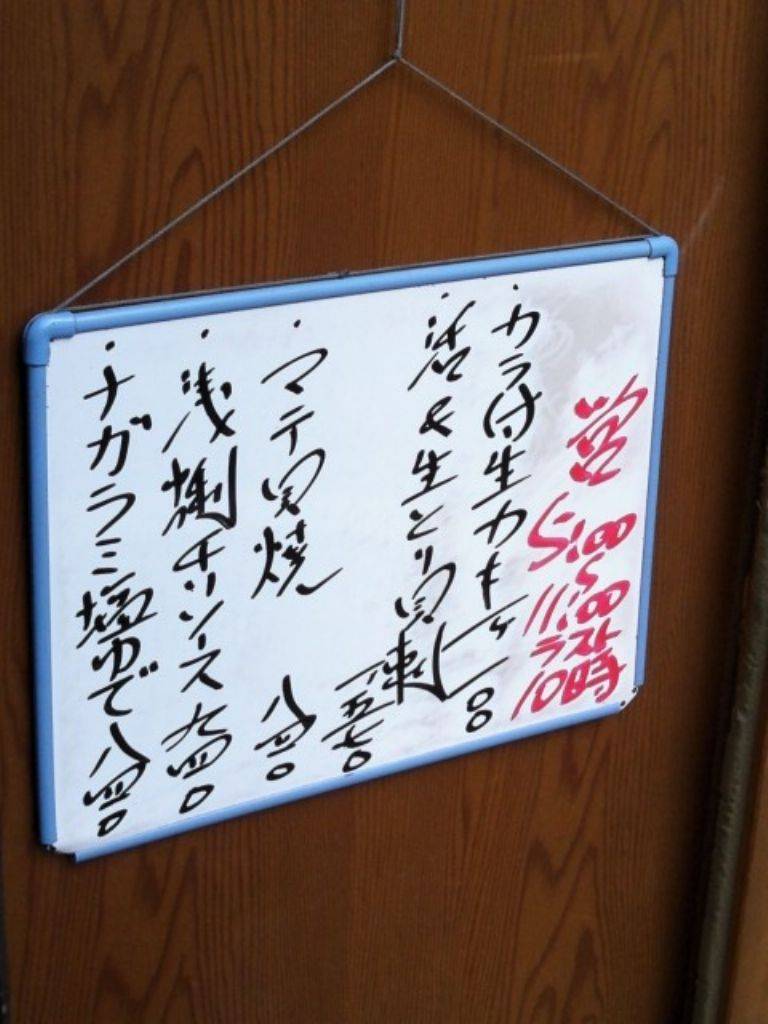 営 5:00〜11:00
ラスト10時
・カラ付生カキ一ケ 
・活とり貝刺 一五七〇
・マテ貝焼 八四〇
・浅利チリソース 九四〇
・ナガラミ塩ゆで 八四〇